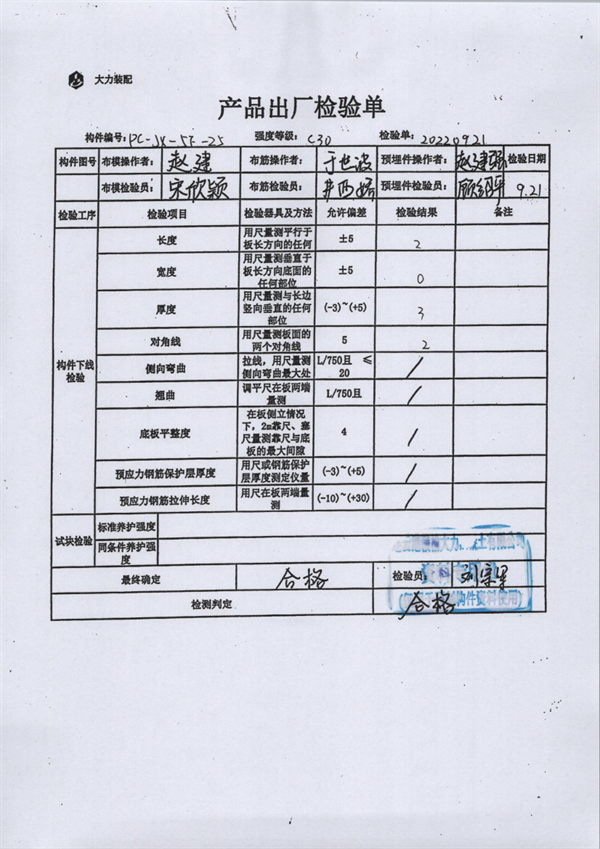 大力装配
产品出厂检验单
构件编号: PC-JX-5F-25 强度等级: C30 检验单: 20220921
构件图号 布模操作者: 赵建 布筋操作者: 于世波 预埋件操作者: 赵建强 检验日期
布模检验员: 宋欣颖 布筋检验员: 预埋件检验员: 9.21
检验工序 检验项目 检验器具及方法 允许偏差 检验结果 备注
构件下线检验
长度 用尺量测平行于板长方向的任何 ±5 2
宽度 用尺量测垂直于板长方向底面的任何部位 ±5 0
厚度 用尺量测与长边竖向垂直的任何部位 (-3)~(+5) 3
对角线 用尺量测板面的两个对角线 5 2
侧向弯曲 拉线，用尺量测侧向弯曲最大处 L/750且 ≤20 /
翘曲 调平尺在板两端量测 L/750且 /
底板平整度 在板侧立情况下，2m靠尺、塞尺量测靠尺与底板的最大间隙 4 /
预应力钢筋保护层厚度 用尺或钢筋保护层厚度测定仪量 (-3)~(+5) /
预应力钢筋拉伸长度 用尺在板两端量测 (-10)~(+30) /
试块检验 标准养护强度
同条件养护强度
最终确定 合格 检验员:
检测判定 合格